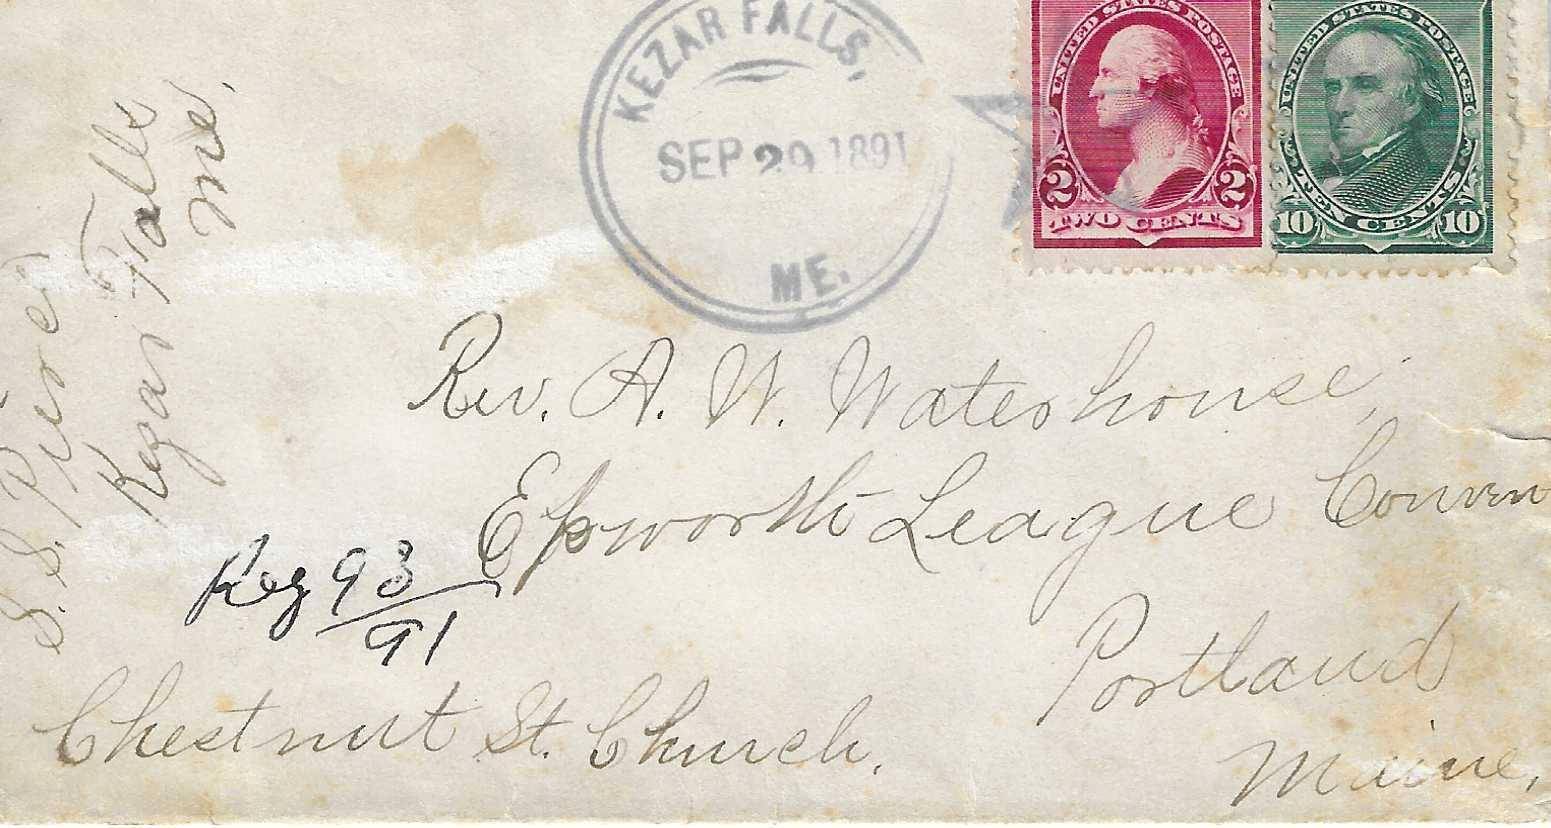 KEZAR FALLS,
SEP 29 1891
ME.
UNITED STATES POSTAGE
2 2
TWO CENTS
UNITED STATES POSTAGE
10 10
TEN CENTS
S. S. Pierce
Kezar Falls
Me.
Rev. A. W. Waterhouse,
Epworth League Conven
Portland
Maine,
Reg 93
91
Chestnut St. Church.